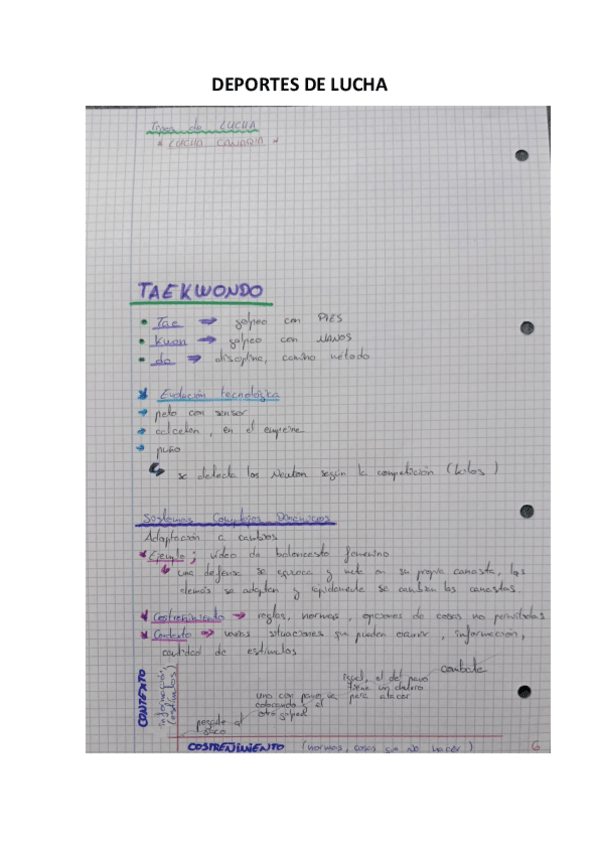 DEPORTES DE LUCHA
Tipos de LUCHA
* LUCHA CANARIA *
TAEKWONDO
• Tae → golpeo con PIES
• Kwon → golpeo con MANOS
• do → disciplina, camino método
Evolución tecnológica
→ peto con sensor
→ calcetón, en el empeine
→ puño
se detecta los Newton según la competición (kilos)
Sistemas Complejos Dinámicos
Adaptación a cambios
Ejemplo; vídeo de baloncesto femenino
una defensa se equivoca y mete en su propia canasta, las
demás se adaptan y rápidamente se cambian las canastas
Costreñimiento → reglas, normas, opciones de cosas no permitidas
Contexto → varias situaciones que pueden ocurrir, información,
cantidad de estímulos
CONTEXTO
información
(estímulos)
pegarle al
saco
uno con paos va
colocando y el
otro golpea
igual, el del pao
tiene un churro
para atacar
combate
COSTREÑIMIENTO (normas, cosas que no hacer)
6